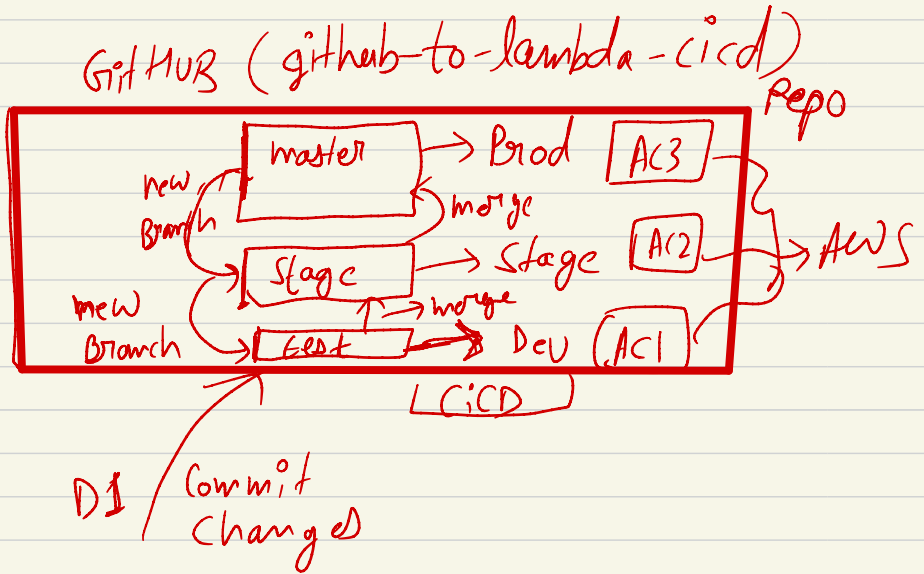 GitHUB (github-to-lambda-cicd)
Repo
master
Prod
AC3
new
Branch
merge
Stage
Stage
AC2
AWS
merge
new
Branch
test
Dev
AC1
CiCD
D1
Commit
Changes